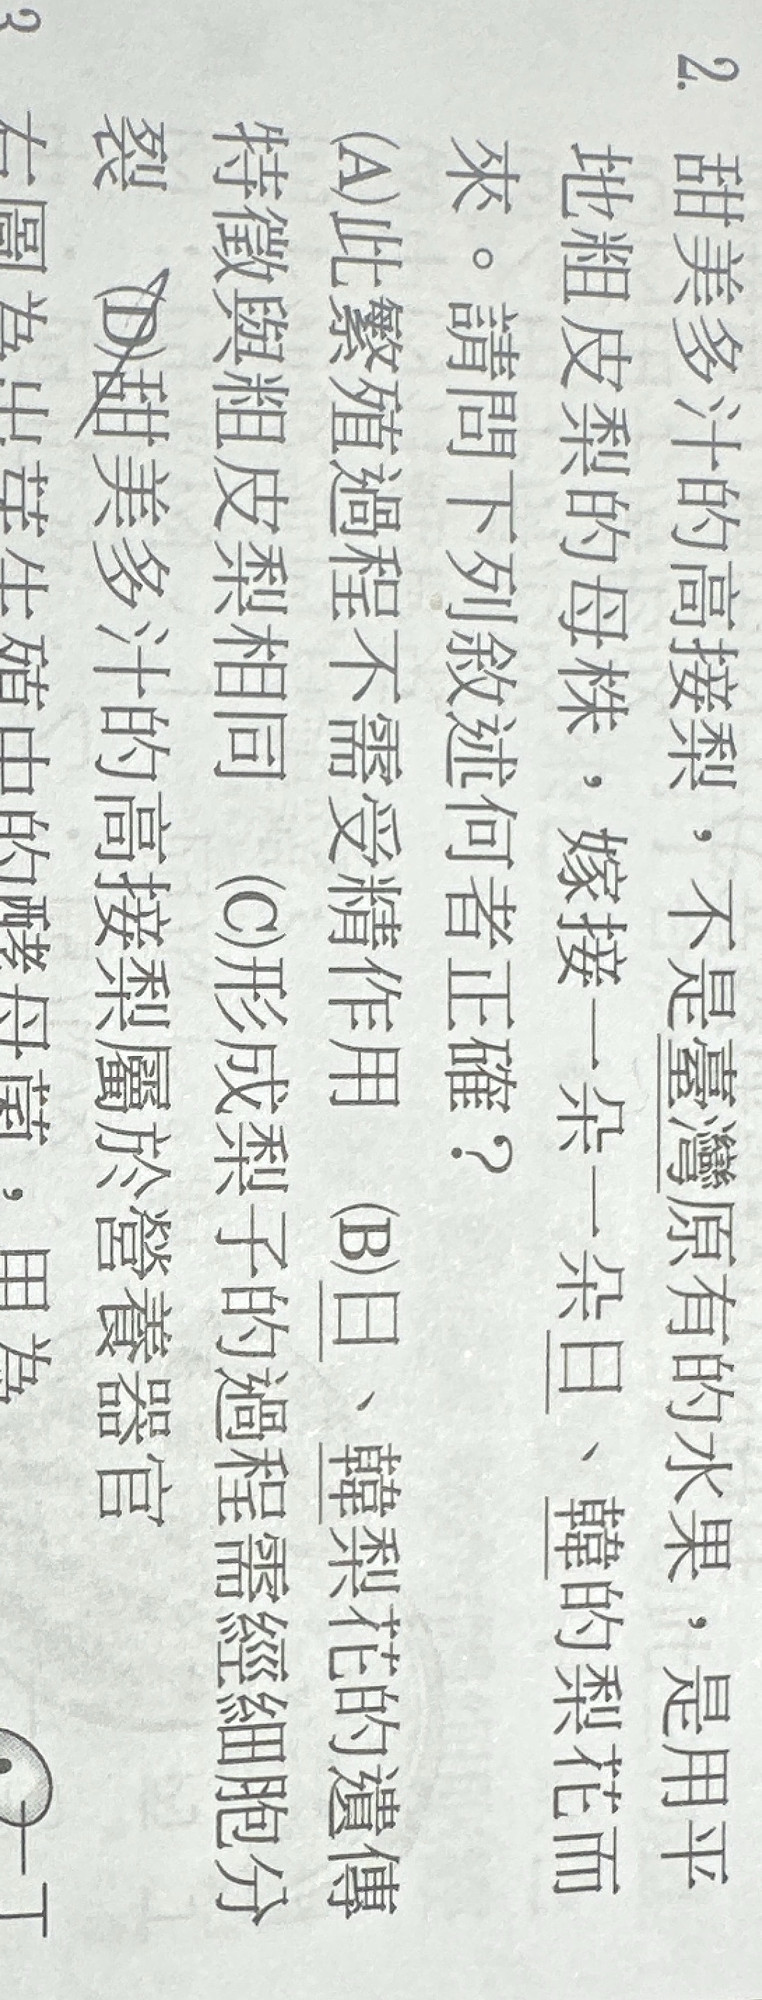 2. 甜美多汁的高接梨，不是臺灣原有的水果，是用平
地粗皮梨的母株，嫁接一朵一朵日、韓的梨花而
來。請問下列敘述何者正確？
(A)此繁殖過程不需受精作用　(B)日、韓梨花的遺傳
特徵與粗皮梨相同　(C)形成梨子的過程需經細胞分
裂　(D)甜美多汁的高接梨屬於營養器官
3. 右圖為出芽生殖中的酵母菌，甲為